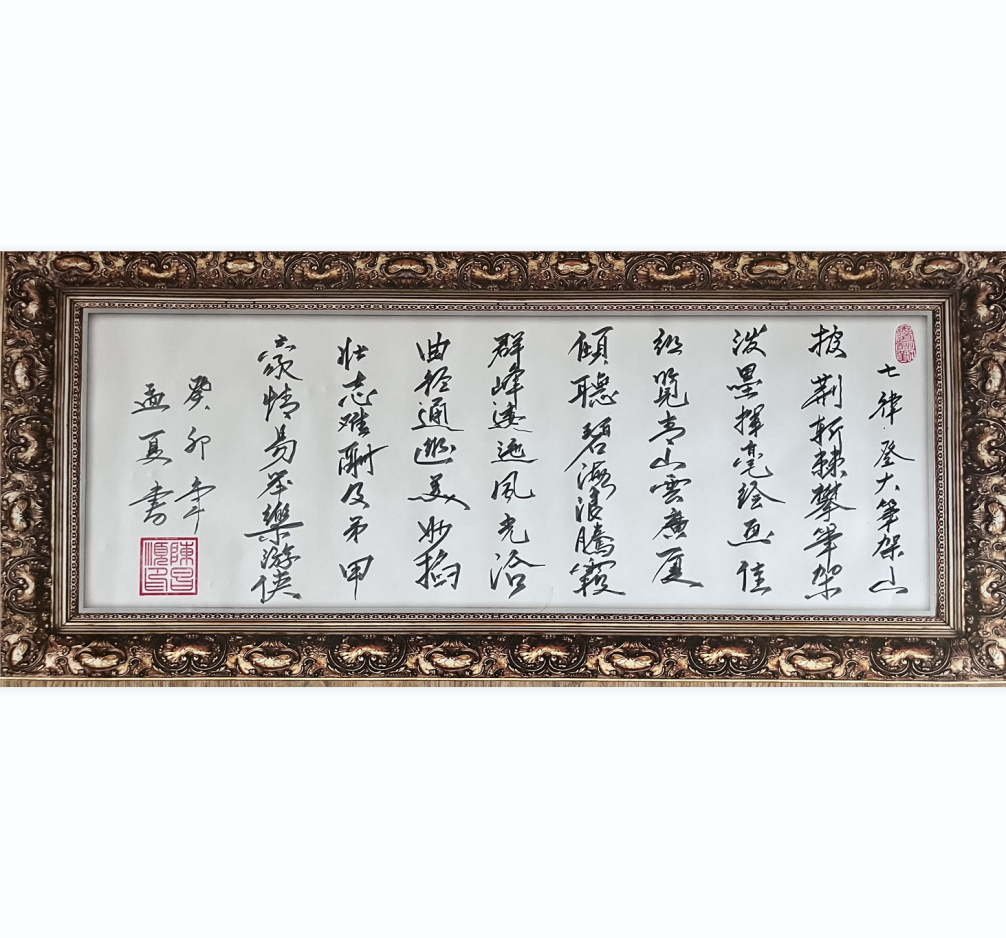 七律 登大笔架山
披荆斩棘攀笔架
泼墨挥毫绘画佳
纵览青山雲广厦
倾聴碧海浪腾霞
群峰逶迤风光浴
曲径通幽美妙
壮志难酬及第甲
豪情易举樂游侠
癸卯年
孟夏书